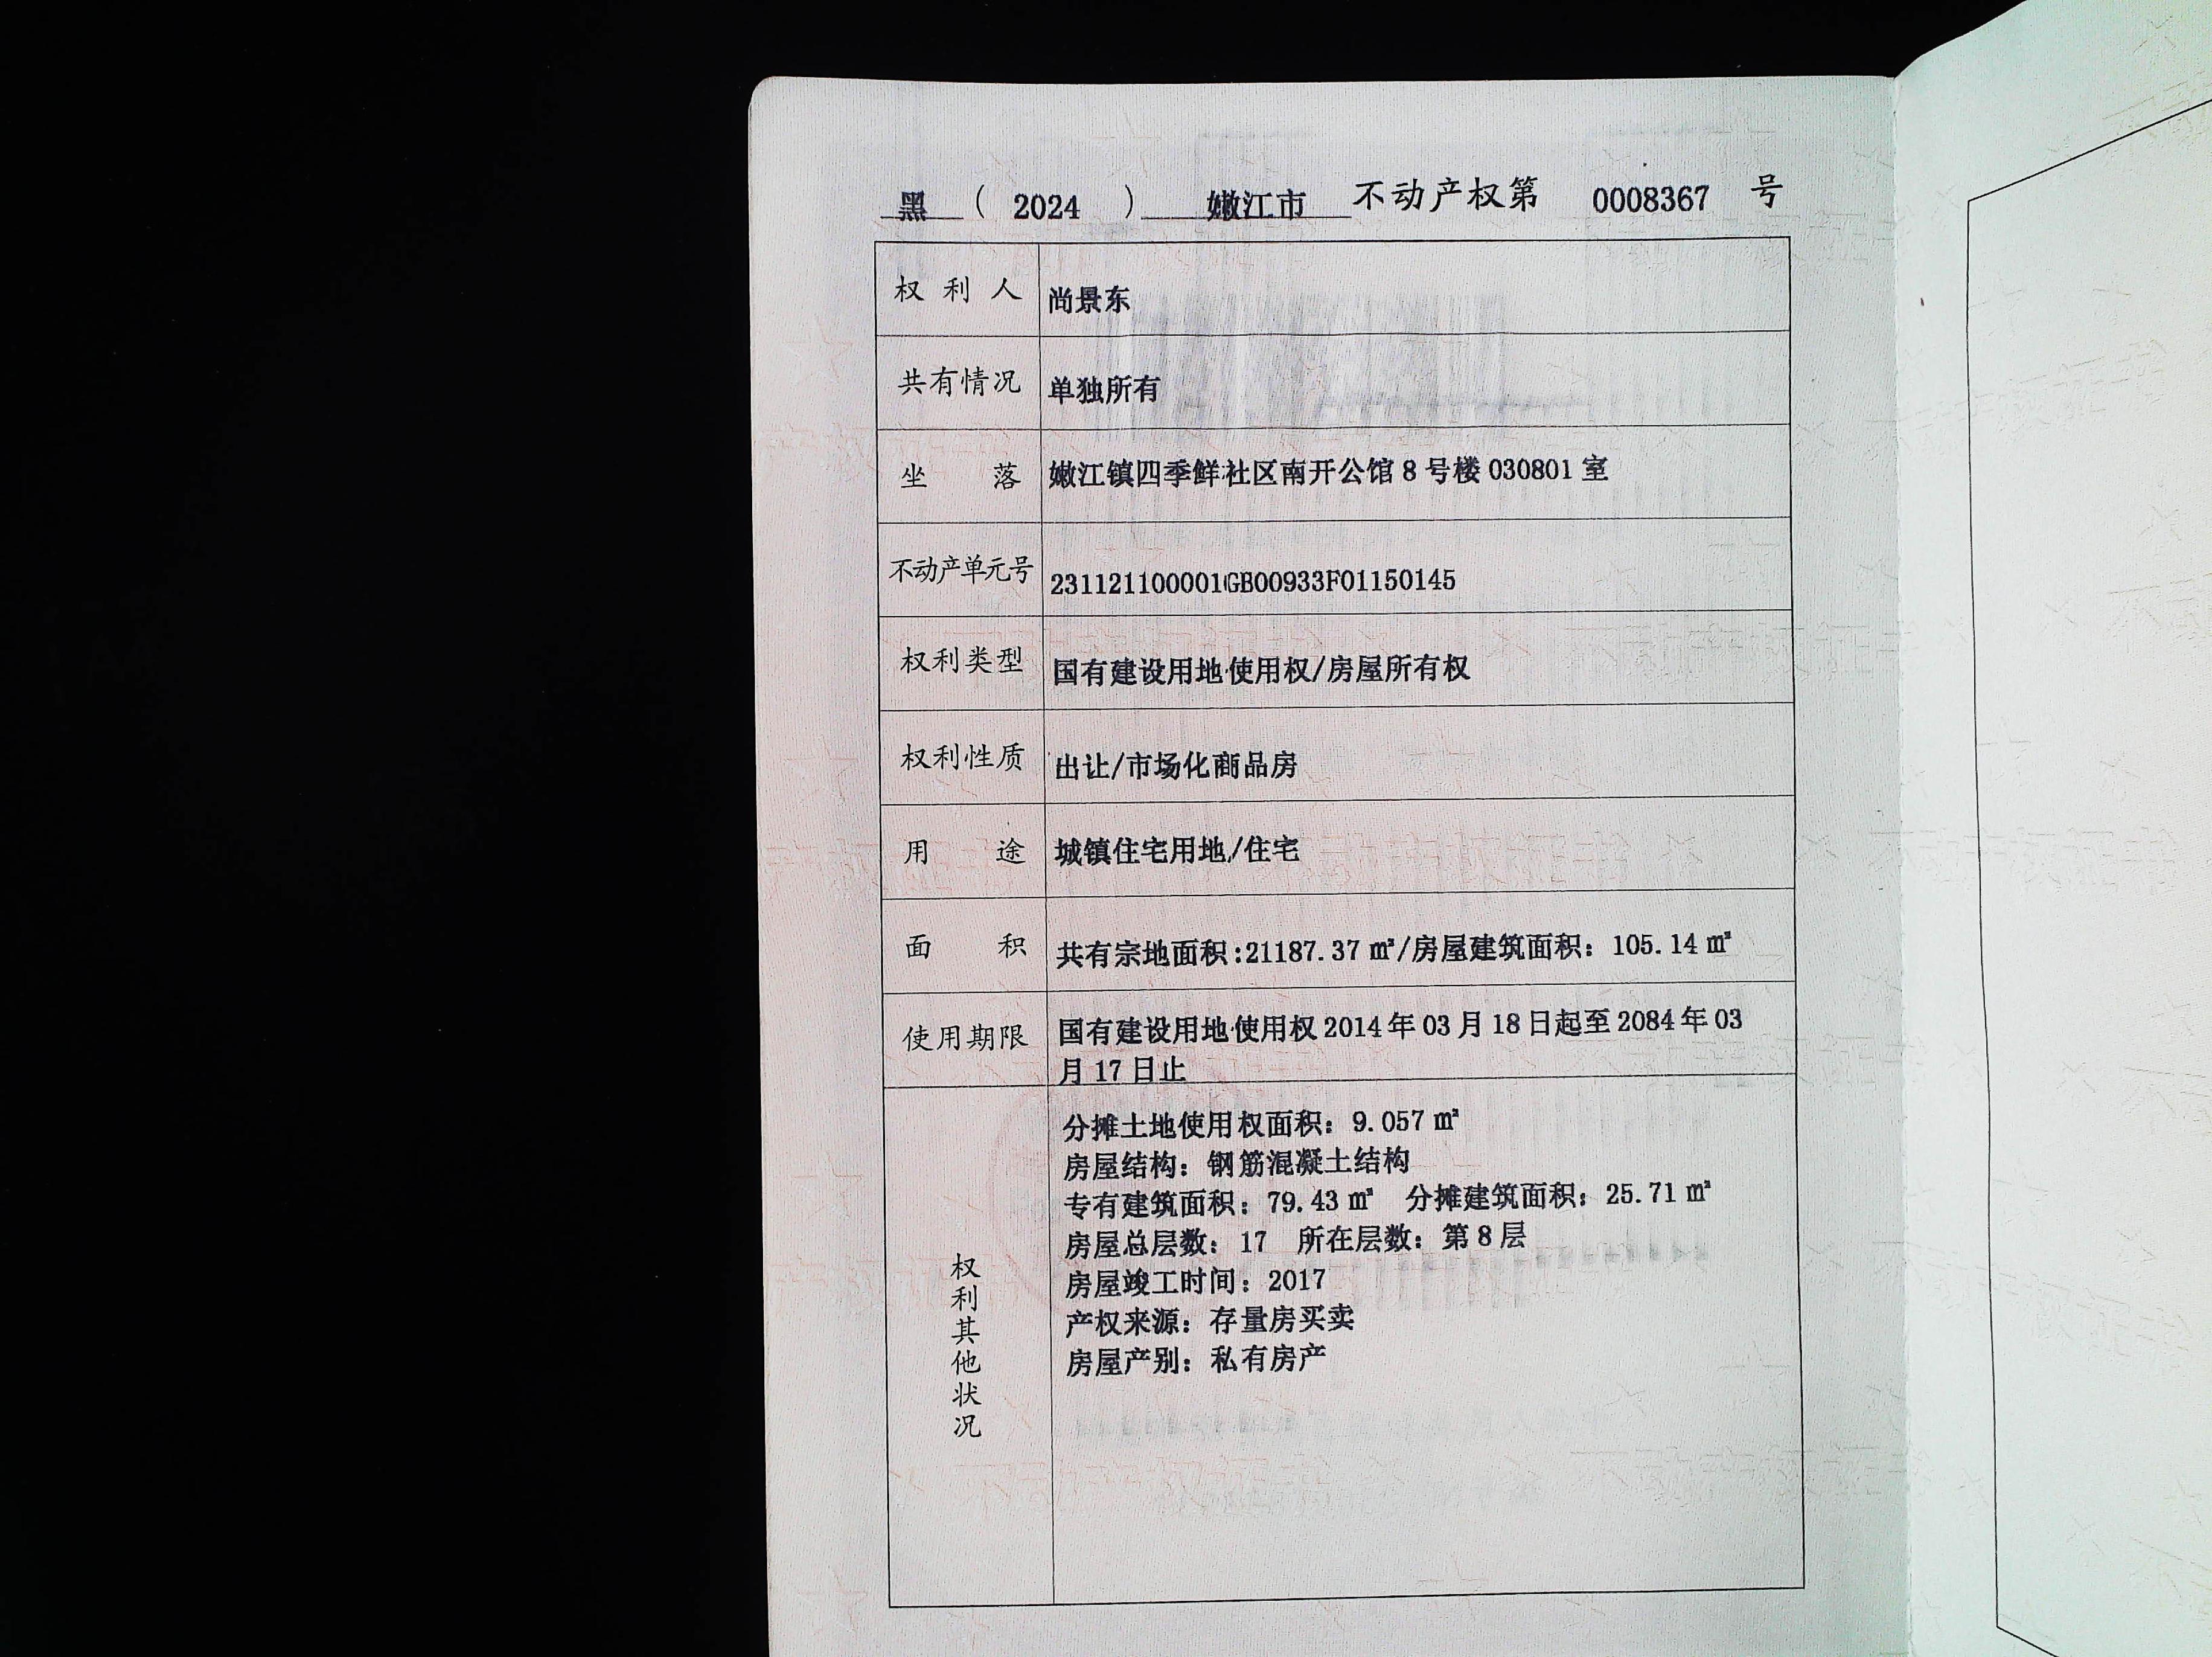 黑（2024）嫩江市不动产权第 0008367 号
权利人 尚景东
共有情况 单独所有
坐落 嫩江镇四季鲜社区南开公馆 8 号楼 030801 室
不动产单元号 231121100001GB00933F01150145
权利类型 国有建设用地使用权/房屋所有权
权利性质 出让/市场化商品房
用途 城镇住宅用地/住宅
面积 共有宗地面积:21187.37 ㎡/房屋建筑面积：105.14 ㎡
使用期限 国有建设用地使用权 2014 年 03 月 18 日起至 2084 年 03
月 17 日止
权利其他状况
分摊土地使用权面积：9.057 ㎡
房屋结构：钢筋混凝土结构
专有建筑面积：79.43 ㎡ 分摊建筑面积：25.71 ㎡
房屋总层数：17 所在层数：第 8 层
房屋竣工时间：2017
产权来源：存量房买卖
房屋产别：私有房产